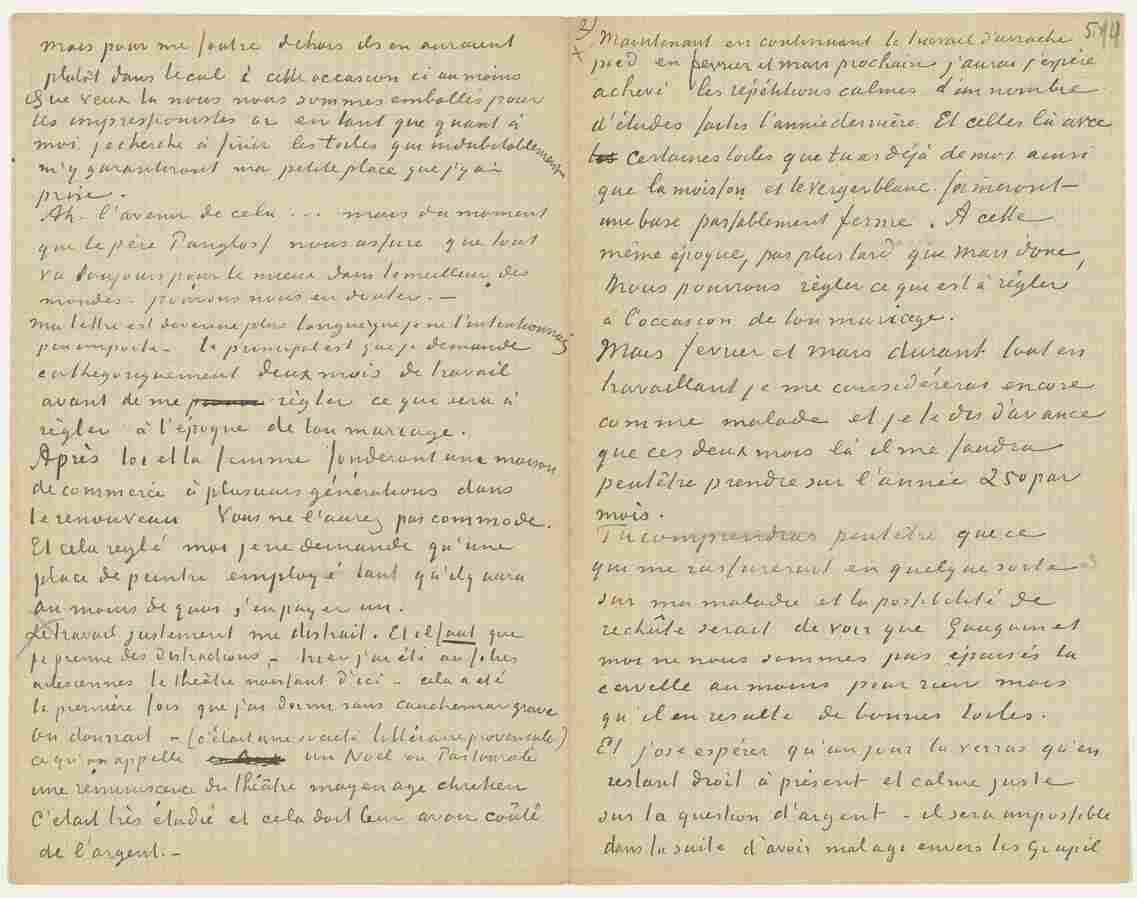 mais pour me foutre dehors ils en auraient
plutôt dans le cul à cette occasion ci au moins
Que veux tu nous nous sommes emballés pour
les impressionistes or en tant que quant à
moi je cherche à finir les toiles qui indubitablement
m'y garantiront ma petite place que j'y ai
prise.
Ah. l'avenir de cela ... mais du moment
que le père Pangloss nous assure que tout
va toujours pour le mieux dans le meilleur des
mondes - pouvons nous en douter. —
Ma lettre est devenue plus longue que je ne l'intentionnais
peu importe — le principal est que je demande
cathégoriquement deux mois de travail
avant de me régler ce que sera à
règler à l'époque de ton mariage.
Après toi et ta femme fonderont une maison
de commerce à plusieurs générations dans
le renouveau Vous ne l'aurez pas commode.
Et cela reglé moi je ne demande qu'une
place de peintre employé tant qu'il y aura
au moins de quoi s'en payer un.
Le travail justement me distrait. Et il faut que
je prenne des distractions — hier j'ai été au folies
arlesiennes le théâtre naissant d'ici — cela a été
la première fois que j'ai dormi sans cauchemar grave
On donnait — (c'était une société littéraire provencale)
ce qu'on appelle un Noel ou Pastourale
une réminiscence du théâtre moyen age chretien
C'était très étudié et cela doit leur avoir coûté
de l'argent. —
2)
514
Maintenant en continuant le travail d'arrache
pied en fevrier et mars prochains j'aurai j'espère
achevé les répétitions calmes d'un nombre
d'études faites l'année dernière. Et celles là avec
certaines toiles que tu as déjà de moi ainsi
que la moisson et le verger blanc formeront
une base passablement ferme. A cette
même époque, pas plus tard que mars donc,
Nous pouvons règler ce qui est à règler
à l'occasion de ton mariage.
Mais fevrier et mars durant tout en
travaillant je me considérerai encore
comme malade et je te dis d'avance
que ces deux mois là il me faudra
peutêtre prendre sur l'année 250 par
mois.
Tu comprendras peutêtre que ce
qui me rassurerait en quelque sorte
sur ma maladie et la possibilité de
rechûte serait de voir que Gauguin et
moi ne nous sommes pas épuisés la
cervelle au moins pour rien mais
qu'il en resulte de bonnes toiles.
Et j'ose espérer qu'un jour tu verras qu'en
restant droit à présent et calme juste
sur la question d'argent — il sera impossible
dans la suite d'avoir mal agi envers les Goupil